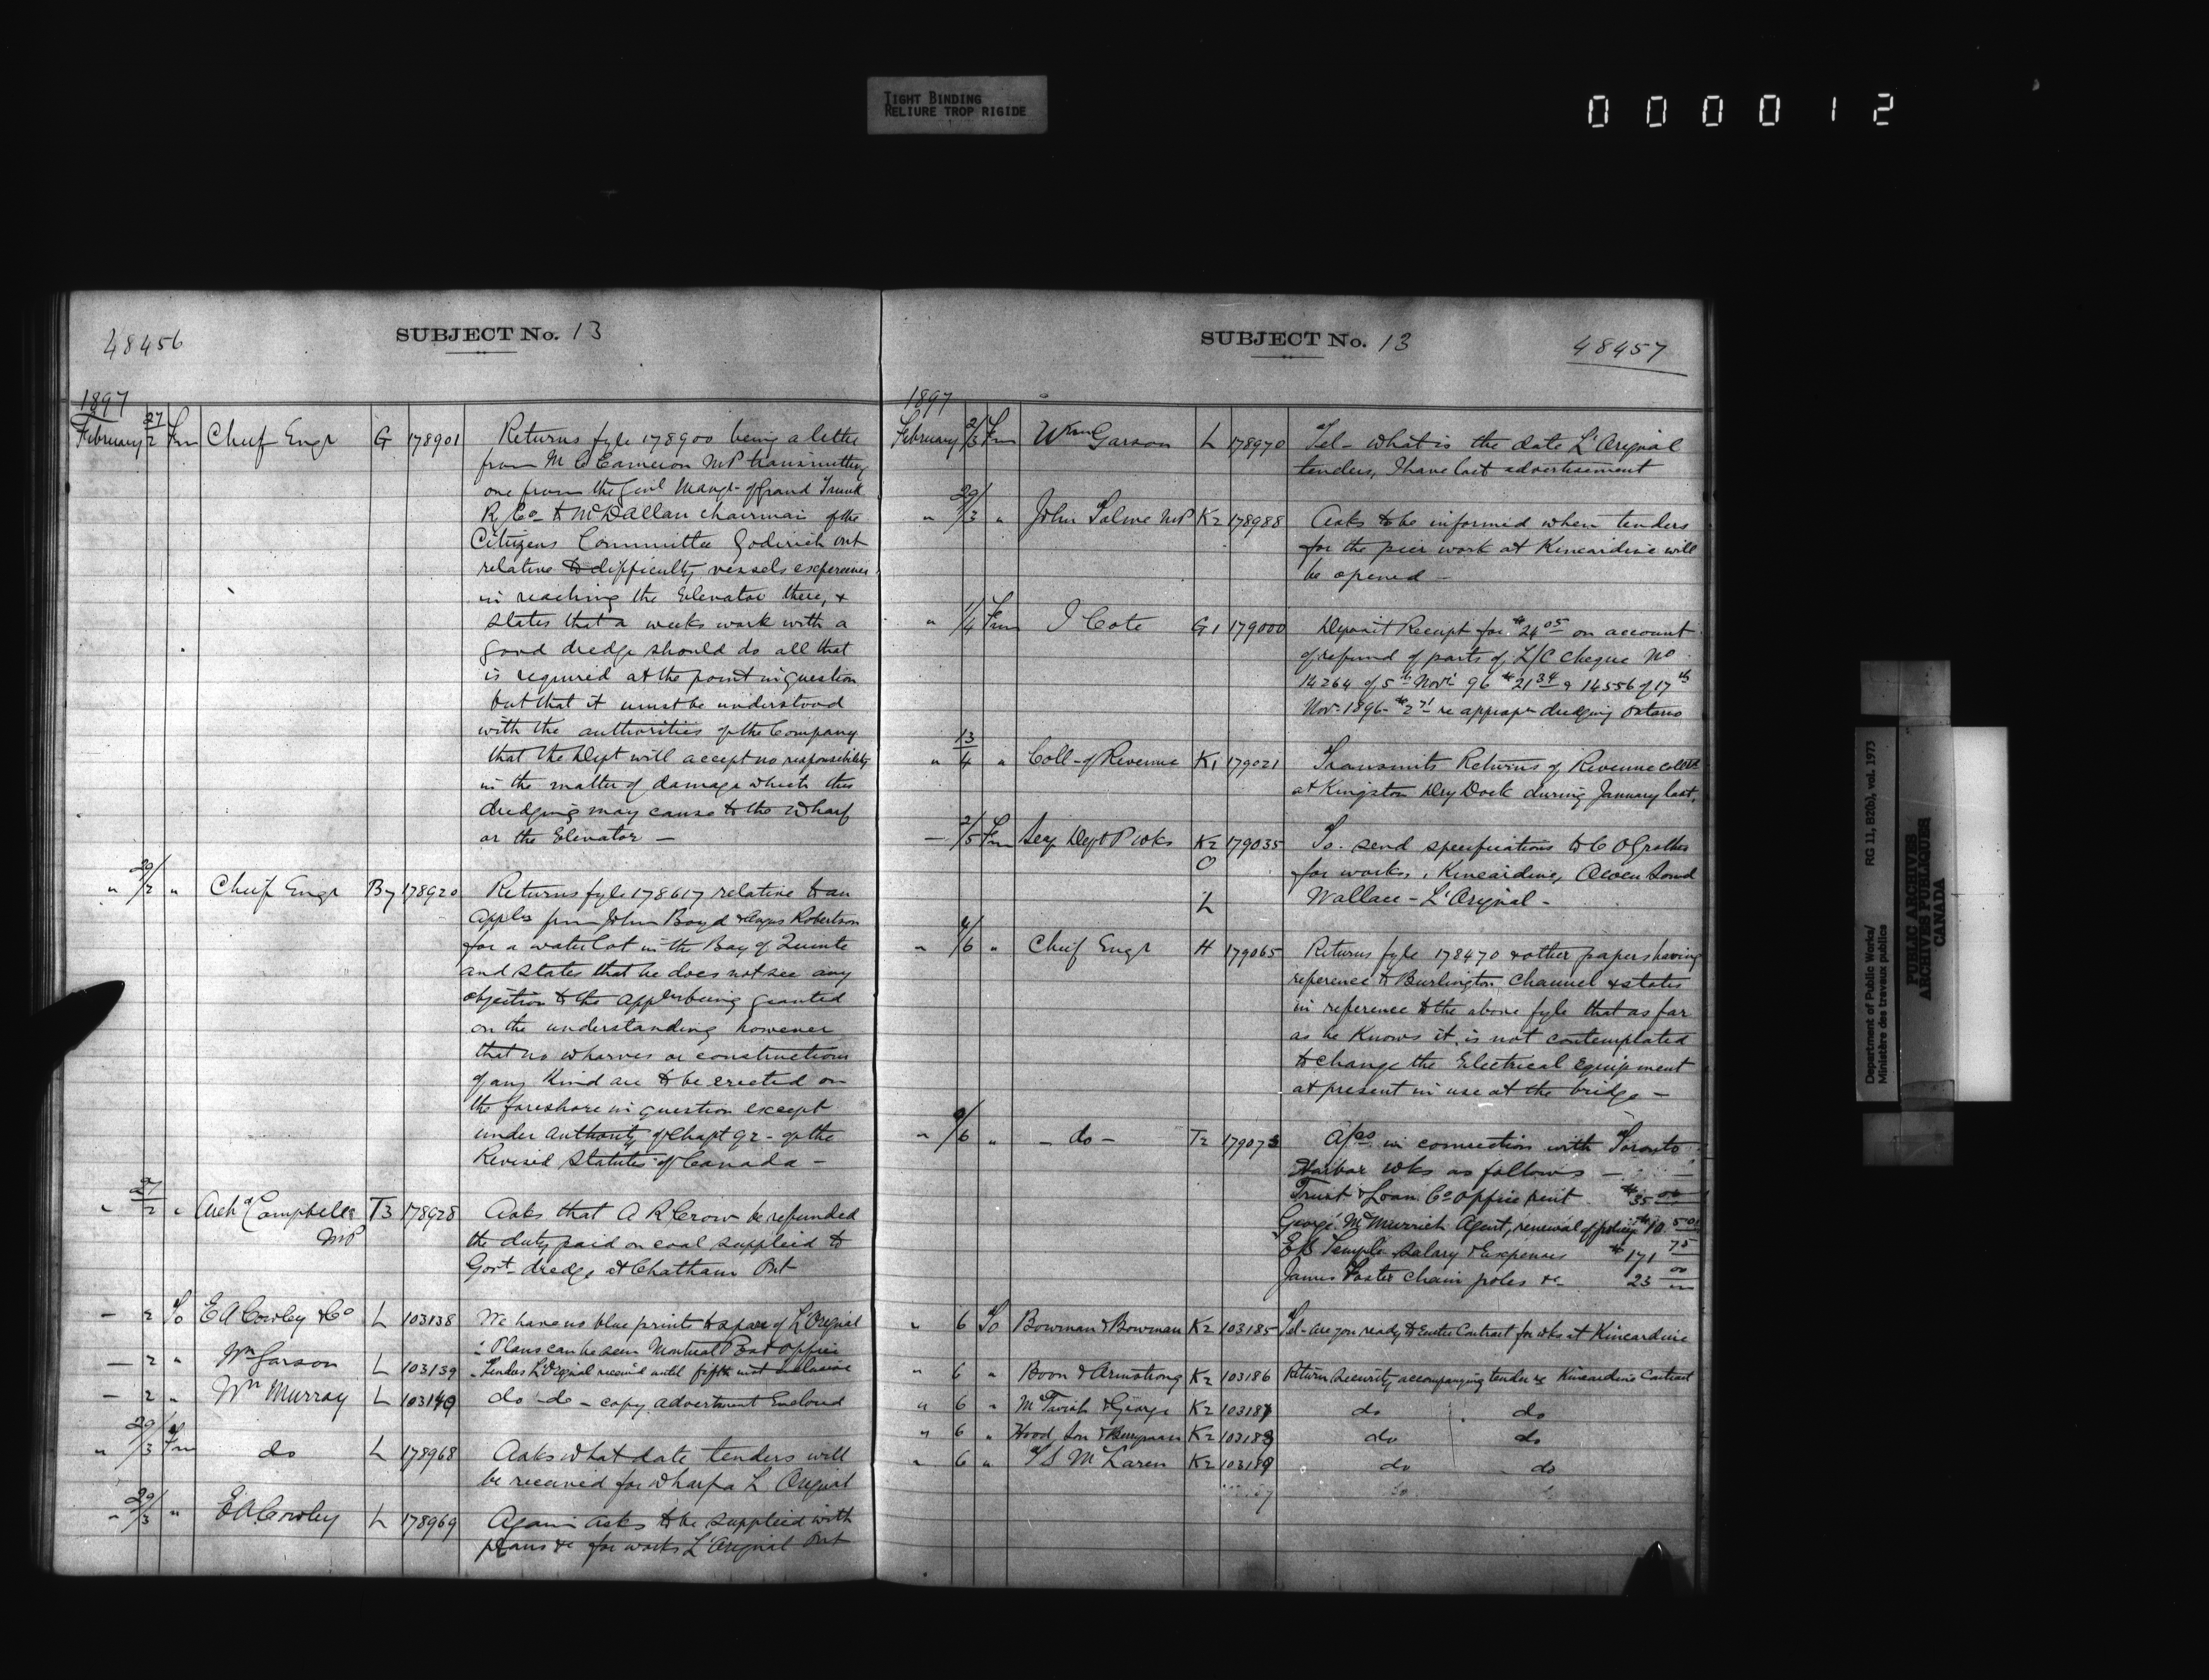 TIGHT BINDING
RELIURE TROP RIGIDE
000012
48456
SUBJECT No. 13
1897
February 27/2 Frm Chief Engr G 178901 Returns fyle 178900 being a letter
from M C Cameron MP transmitting
one from the Genl Mangr of Grand Trunk
R Co to Mc D Allan chairman of the
Citizens Committee Goderich Ont
relative to difficulty vessels experience
in reaching the Elevator there, &
states that a weeks work with a
good dredge should do all that
is required at the point in question
but that it must be understood
with the authorities of the Company
that the Dept will accept no responsibility
in the matter of damage which this
dredging may cause to the Wharf
or the Elevator —
" 29/2 " Chief Engr B7 178920 Returns fyle 178617 relative to an
Applen from John Boyd & Angus Robertson
for a water lot in the Bay of Quinte
and states that he does not see any
objection to the Applen being granted
on the understanding however
that no wharves or constructions
of any Kind are to be erected on
the foreshore in question except
under authority of Chapt 92 - of the
Revised Statutes of Canada —
" 27/2 " Archd Campbell T3 178928 Asks that A R Crow be refunded
MP the duty paid on coal supplied to
Govt dredge at Chatham Ont
— 2 To E A Cowley & Co L 103138 We have no blue prints to spare of L'Orignal
: Plans can be seen Montreal Post Office
— 2 " Wm Garson L 103139 Tenders L'Orignal received until fifth inst inclusive
— 2 " Wm Murray L 103140 do do - copy advertisment Enclosed
" 29/3 Frm do L 178968 Asks what date tenders will
be received for Wharf a L Orignal
" 29/3 " E A Cowley L 178969 Again asks to be supplied with
plans &c for works L'Orignal Ont
SUBJECT No. 13
48457
1897
February 2/3 Frm Wm Garson L 178970 Tel - What is the date L'Orignal
tenders, I have lost advertisement
" 29/3 " John Tolmie MP K2 178988 Asks to be informed when tenders
for the pier work at Kincardine will
be opened —
" 1/4 Frm J Cote G1 179000 Deposit Receipt for $24 05 on account
of refund of parts of L/C Cheque No
14264 of 5th Novr 96 $21 34 & 14556 of 17th
Nov- 1896 $2 71 re appropn dredging Ontario
" 13/4 " Coll - of Revenue K1 179021 Transmits Returns of Revenue colltd
at Kingston Dry Dock during January last,
— 2/5 Frm Secy Dept P Wks K2 179035 To send specifications to C O
O for works, Kincardine, Owen Sound
L Wallace - L'Orignal -
" 4/6 " Chief Engr H 179065 Returns fyle 178470 & other papers having
reference to Burlington Channel & states
in reference to the above fyle that as far
as he Knows it is not contemplated
to change the Electrical equipment
at present in use at the bridge —
" 9/6 " - do - T2 179073 A/cs in connection with Toronto
Harbor Wks as follows —
Trust & Loan Co Office rent $35 00
George McMurrich Agent, renewal of policy $10 50
E B Temple Salary & Expenses $171 75
James Foster Chain poles &c 23 00
" 6 To Bowman & Bowman K2 103185 Tel - are you ready to Enter Contract for wks at Kincardine
" 6 " Boon & Armstrong K2 103186 Return Security accompanying tender re Kincardine Contract
" 6 " McTavish & George K2 103187 do do
" 6 " Hood, Son & Berryman K2 103188 do do
" 6 " J S McLaren K2 103189 do do
Department of Public Works/
Ministère des travaux publics
RG 11, B2(b), vol. 1973
PUBLIC ARCHIVES
ARCHIVES PUBLIQUES
CANADA